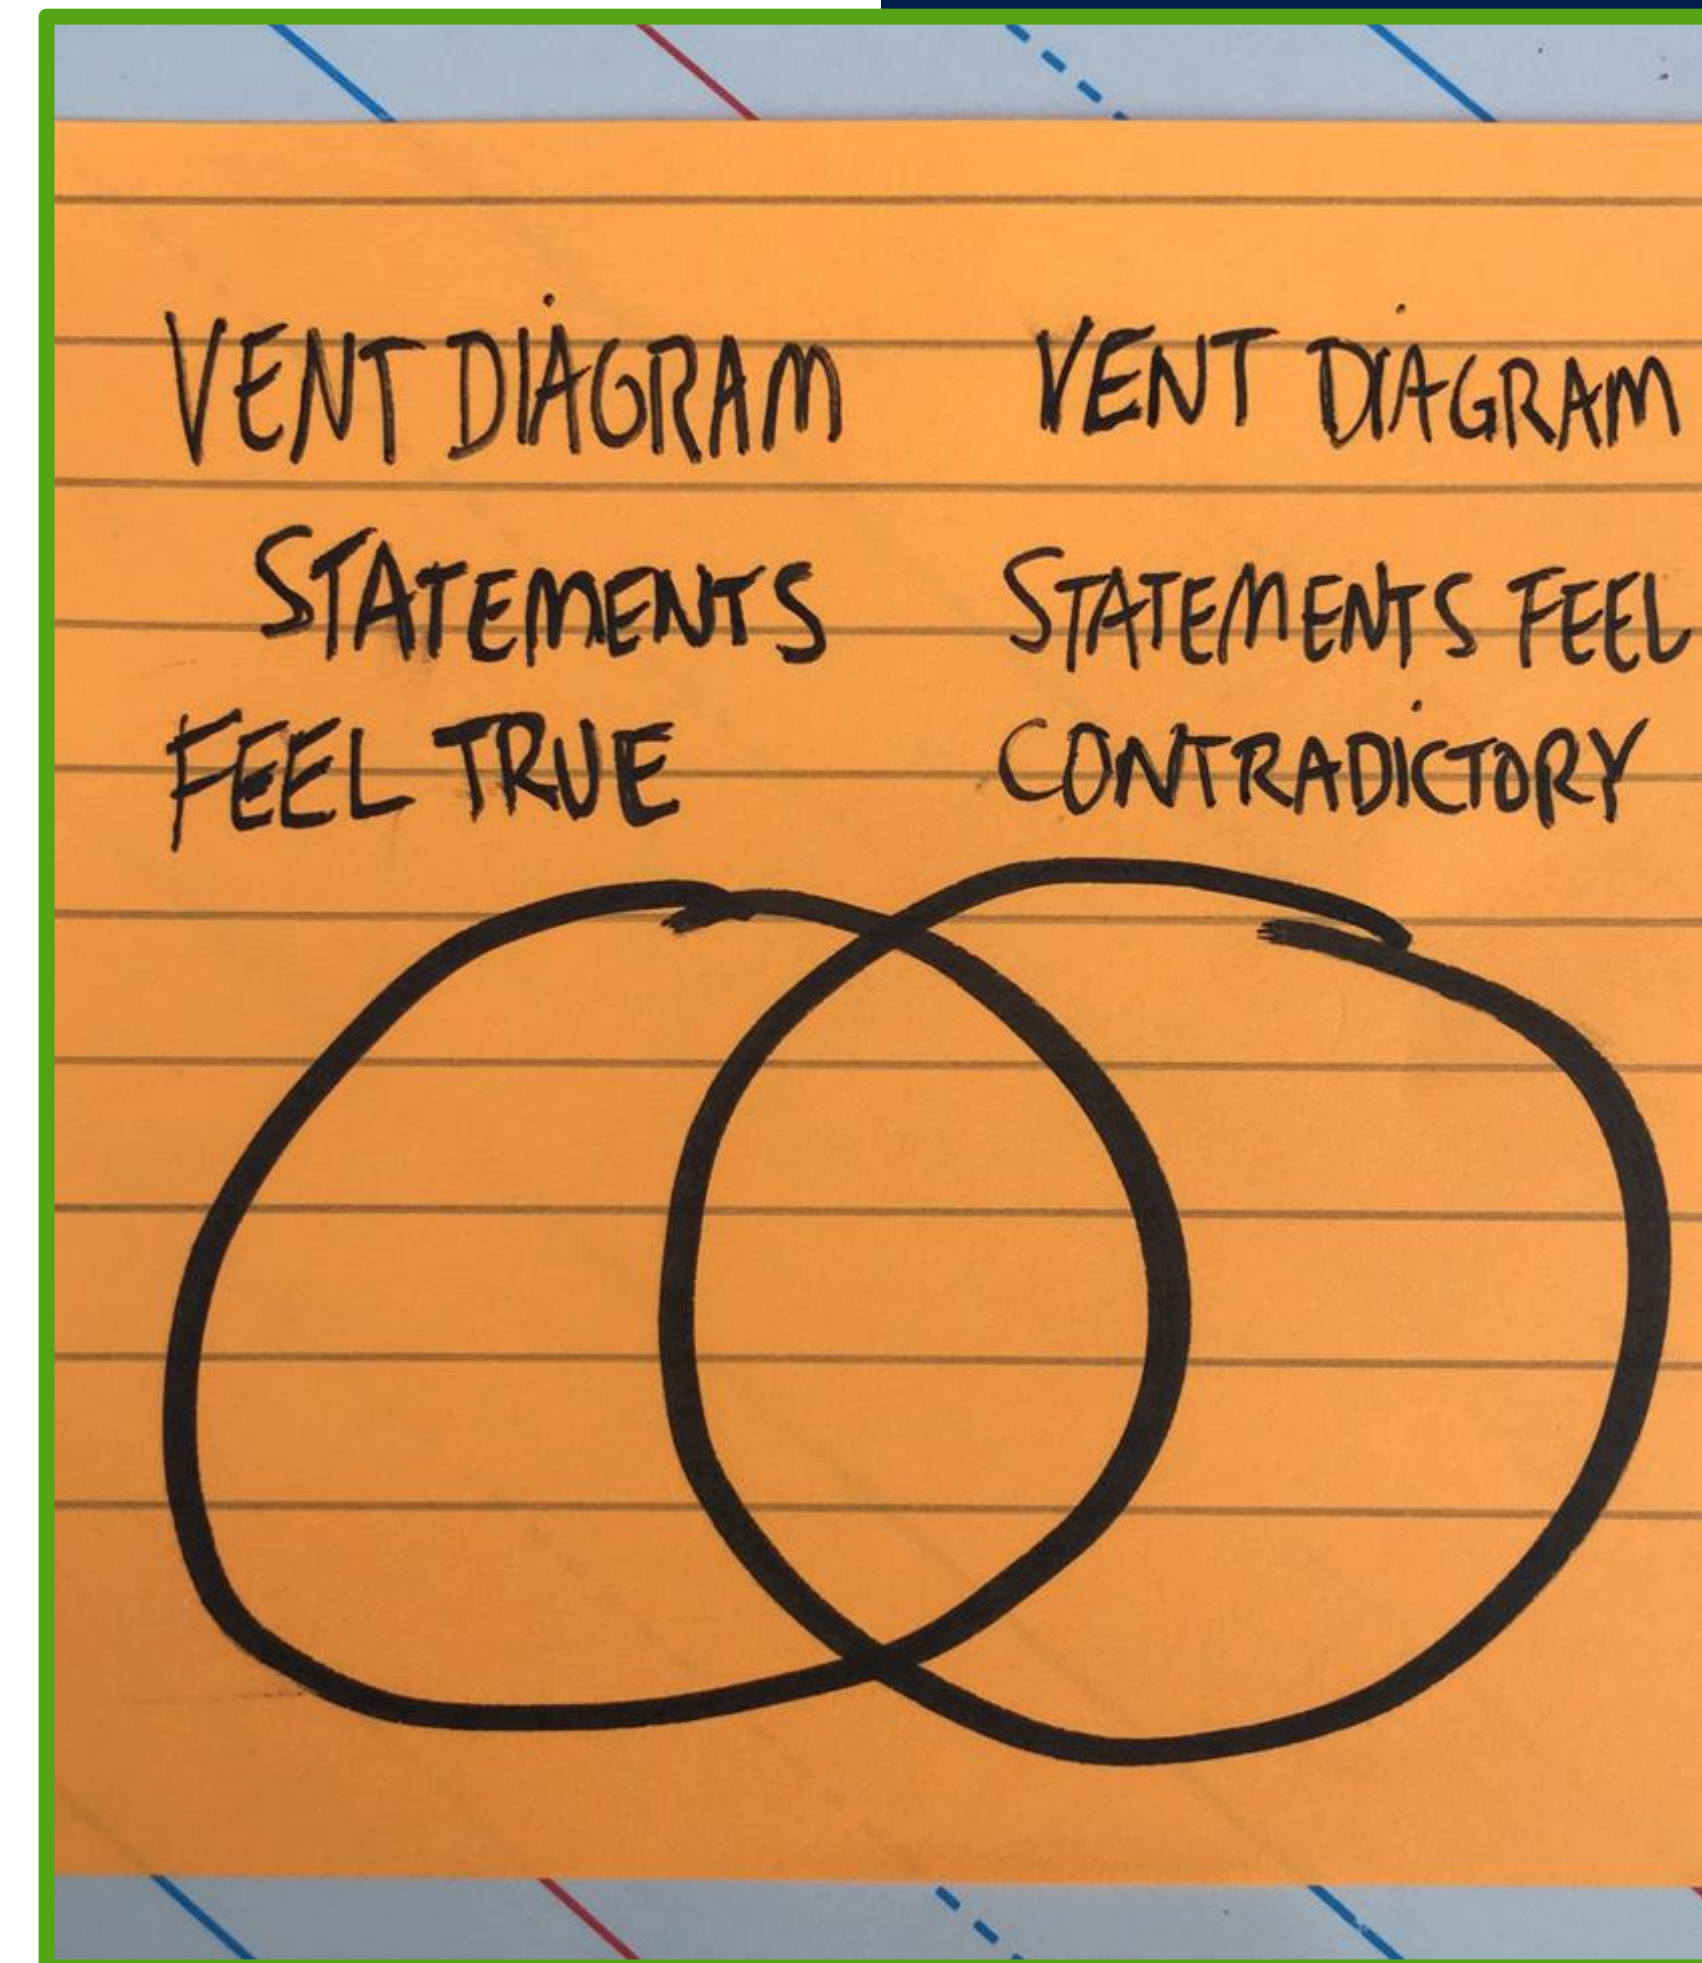 VENT DIAGRAM
STATEMENTS
FEEL TRUE
VENT DIAGRAM
STATEMENTS FEEL
CONTRADICTORY